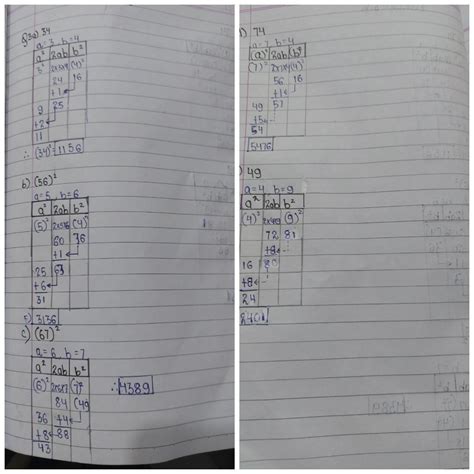 Q3a) 34
a=3, b=4
a² 2ab b²
3² 2x3x4 (4)²
24 16
+1
9 25
+2
11
∴ (34)² = 1156
b) (56)²
a=5, b=6
a² 2ab b²
(5)²
60 36
+1
25 61
+6
31
3136
c) (67)²
a=6, b=7
a² 2ab b²
(6)² 2x6x7 (7)²
84 (49
36 +4
+8 88
43
∴ 4389
) 74
a=7, b=4
(a)² 2ab (b)²
(7)² 2x7x4 (4)²
56 16
+1
49 57
+5
54
5476
) 49
a=4, b=9
a² 2ab b²
(4)² 2x4x9 (9)²
72 81
+8
16 80
+8
24
2401